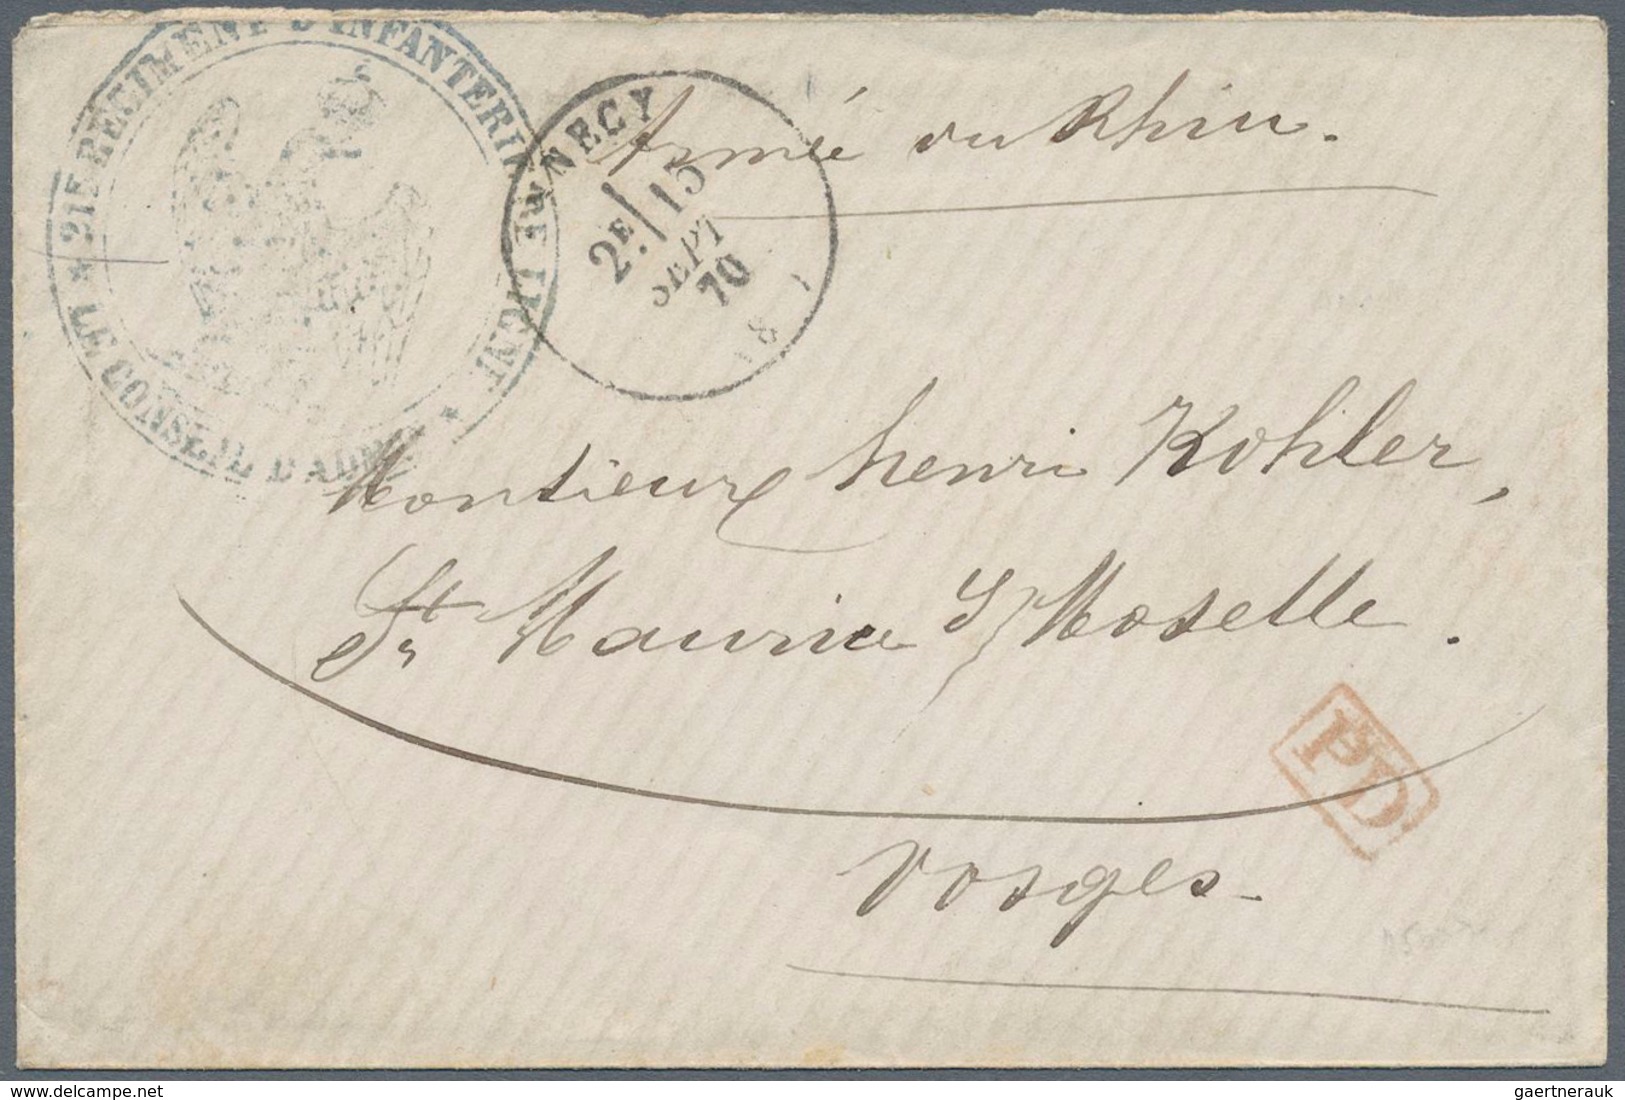 21E RÉGIMENT D'INFANTERIE DE LIGNE
LE CONSEIL D'ADMON
ANNECY
2E 15
SEPT
70
Armée du Rhin.
Monsieur henri Kohler,
St Maurice s/ Moselle.
Vosges
PD
www.delcampe.net
gaertnerauk